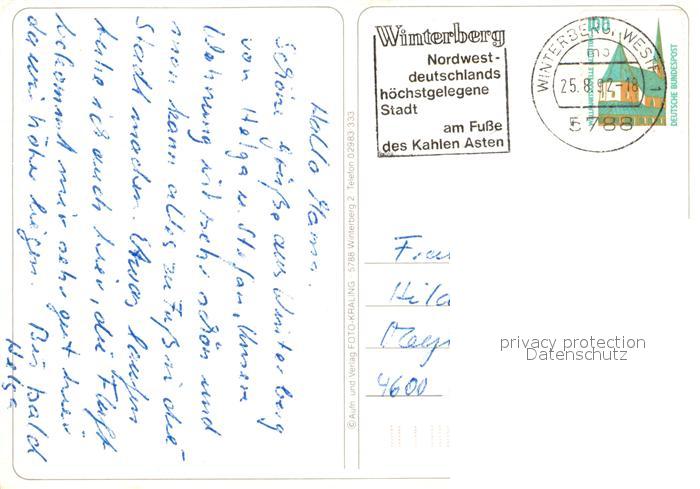 Hallo Mama.
Schöne Grüße aus Winterberg
von Helga u. Stefan. Unsere
Wohnung ist sehr schön und
man kann alles zu Fuß in der
Stadt machen. Etwas laufen
tuhe ich auch hier, die Luft
bekommt mir sehr gut hier
da wir höher liegen. Bis bald
Helga
© Aufn. und Verlag FOTO-KRALING 5788 Winterberg 2 Telefon 02983 333
Winterberg
Nordwest-
deutschlands
höchstgelegene
Stadt
am Fuße
des Kahlen Asten
WINTERBERG, WESTF
mb
25.8.92-18
1
5788
100
DEUTSCHE BUNDESPOST
Frau
Hild
4600
privacy protection
Datenschutz